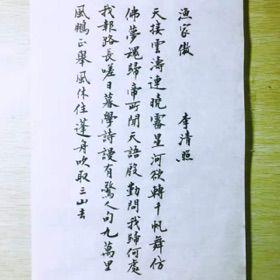 漁家傲 李清照
天接雲濤連曉霧星河欲轉千帆舞仿
佛夢魂歸帝所聞天語殷勤問我歸何處
我報路長嗟日暮學詩謾有驚人句九萬里
風鵬正舉風休住蓬舟吹取三山去